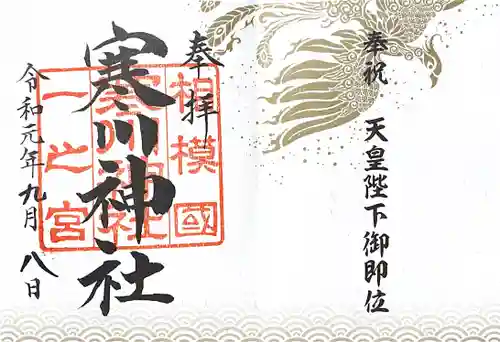 奉祝 天皇陛下御即位
奉拝
相模國
寒川神社
寒川神社
一之宮
令和元年九月八日